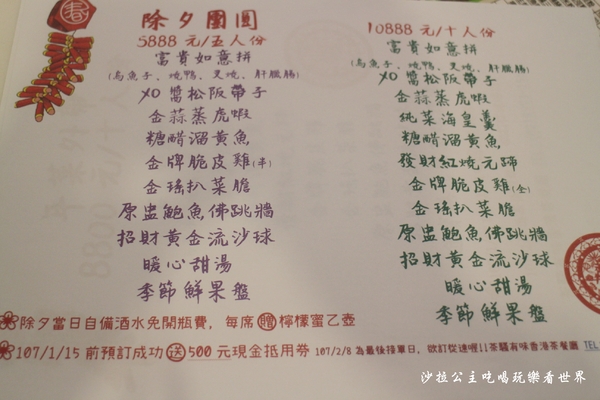 春
除夕團圓
5888 元/五人份
富貴如意拼
(烏魚子、燒鴨、叉燒、肝臘腸)
XO 醬松阪帶子
金蒜蒸虎蝦
糖醋溜黃魚
金牌脆皮雞(半)
金瑤扒菜膽
原盅鮑魚佛跳牆
招財黃金流沙球
暖心甜湯
季節鮮果盤
10888 元/十人份
富貴如意拼
(烏魚子、燒鴨、叉燒、肝臘腸)
XO 醬松阪帶子
金蒜蒸虎蝦
純菜海皇羹
發財紅燒元蹄
金牌脆皮雞(全)
金瑤扒菜膽
原盅鮑魚佛跳牆
招財黃金流沙球
暖心甜湯
季節鮮果盤
除夕當日自備酒水免開瓶費，每席 贈 檸檬蜜乙壺
107/1/15 前預訂成功 送 500 元現金抵用券 107/2/8 為最後接單日，欲訂從速喔!!茶騷有味香港茶餐廳 TEL
沙拉公主吃喝玩樂看世界